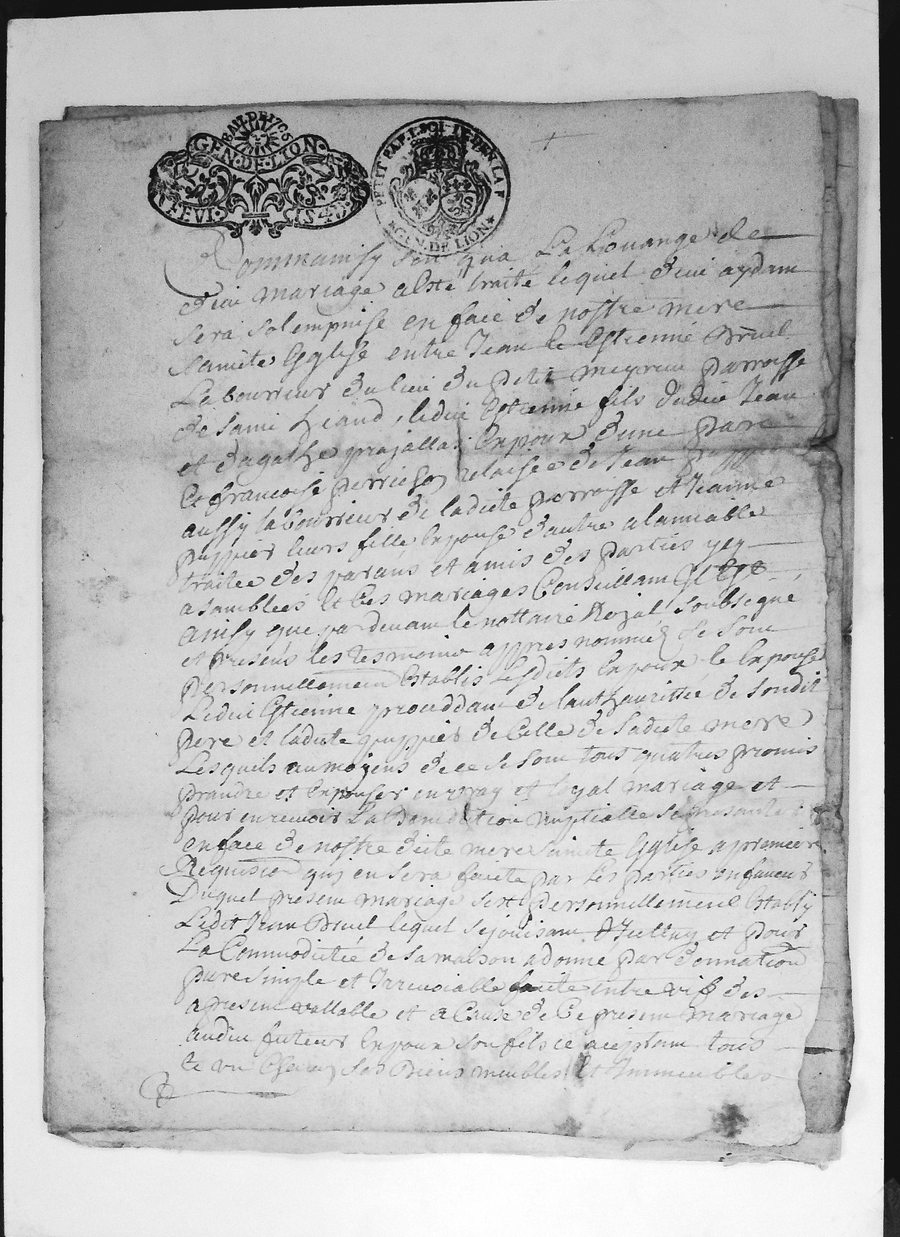 BAIL DE 1706
GEN · DE · LION ·
FEVI · CIS 4 D
PETIT PAP
GEN. DE LION
Comme ainsy soit qua La Louange de
dieu mariage a esté traité lequel dieu aydant
sera solempnisé en face de nostre mere
saincte Eglise entre Jean Estienne Bruel
Labourreur du lieu du petit parroisse
de Saint ledict Estienne fils dudict Jean
et dagathe Enpoux dune pare
Et francoise relaisée de Jean
aussy labourreur de ladicte parroisse et Jeanne
puppier leurs fille Enpouse dautre a lamiable
traitée des parans et amis des parties
asamblées Et Ces mariages Conseillam
ainsy que par devam le nottaire Royal soubsigne
et presens les tesmoins appres nommés se sont
personnellement establis Lesdicts Enpoux le Enpouse
Ledict Estienne proceddam de lauthaurittée de sondit
pere et ladicte puppier de Celle de sadicte mere
Lesquels au moyens de ce se sont tous quatres promis
prandre et enpouser en vray et loyal mariage et
pour en recevoir La benediction nuptialle se presante
en face de nostre dicte mere saincte Eglise a premiere
Requision quy en sera faicte par Les parties en faveur
Duquel presem mariage sest personnellement Establi
Ledit Jean Bruel lequel sejouisam et pour
La Commoditée de sa maison a donné par donnation
pure simple et Irrevoiable faicte entre vif des
a presem vallable et a Cause de Ce presem mariage
audict futeur Enpoux son fils ce aceptam tous
Et un Chacun ses Biens meubles Et Immeubles